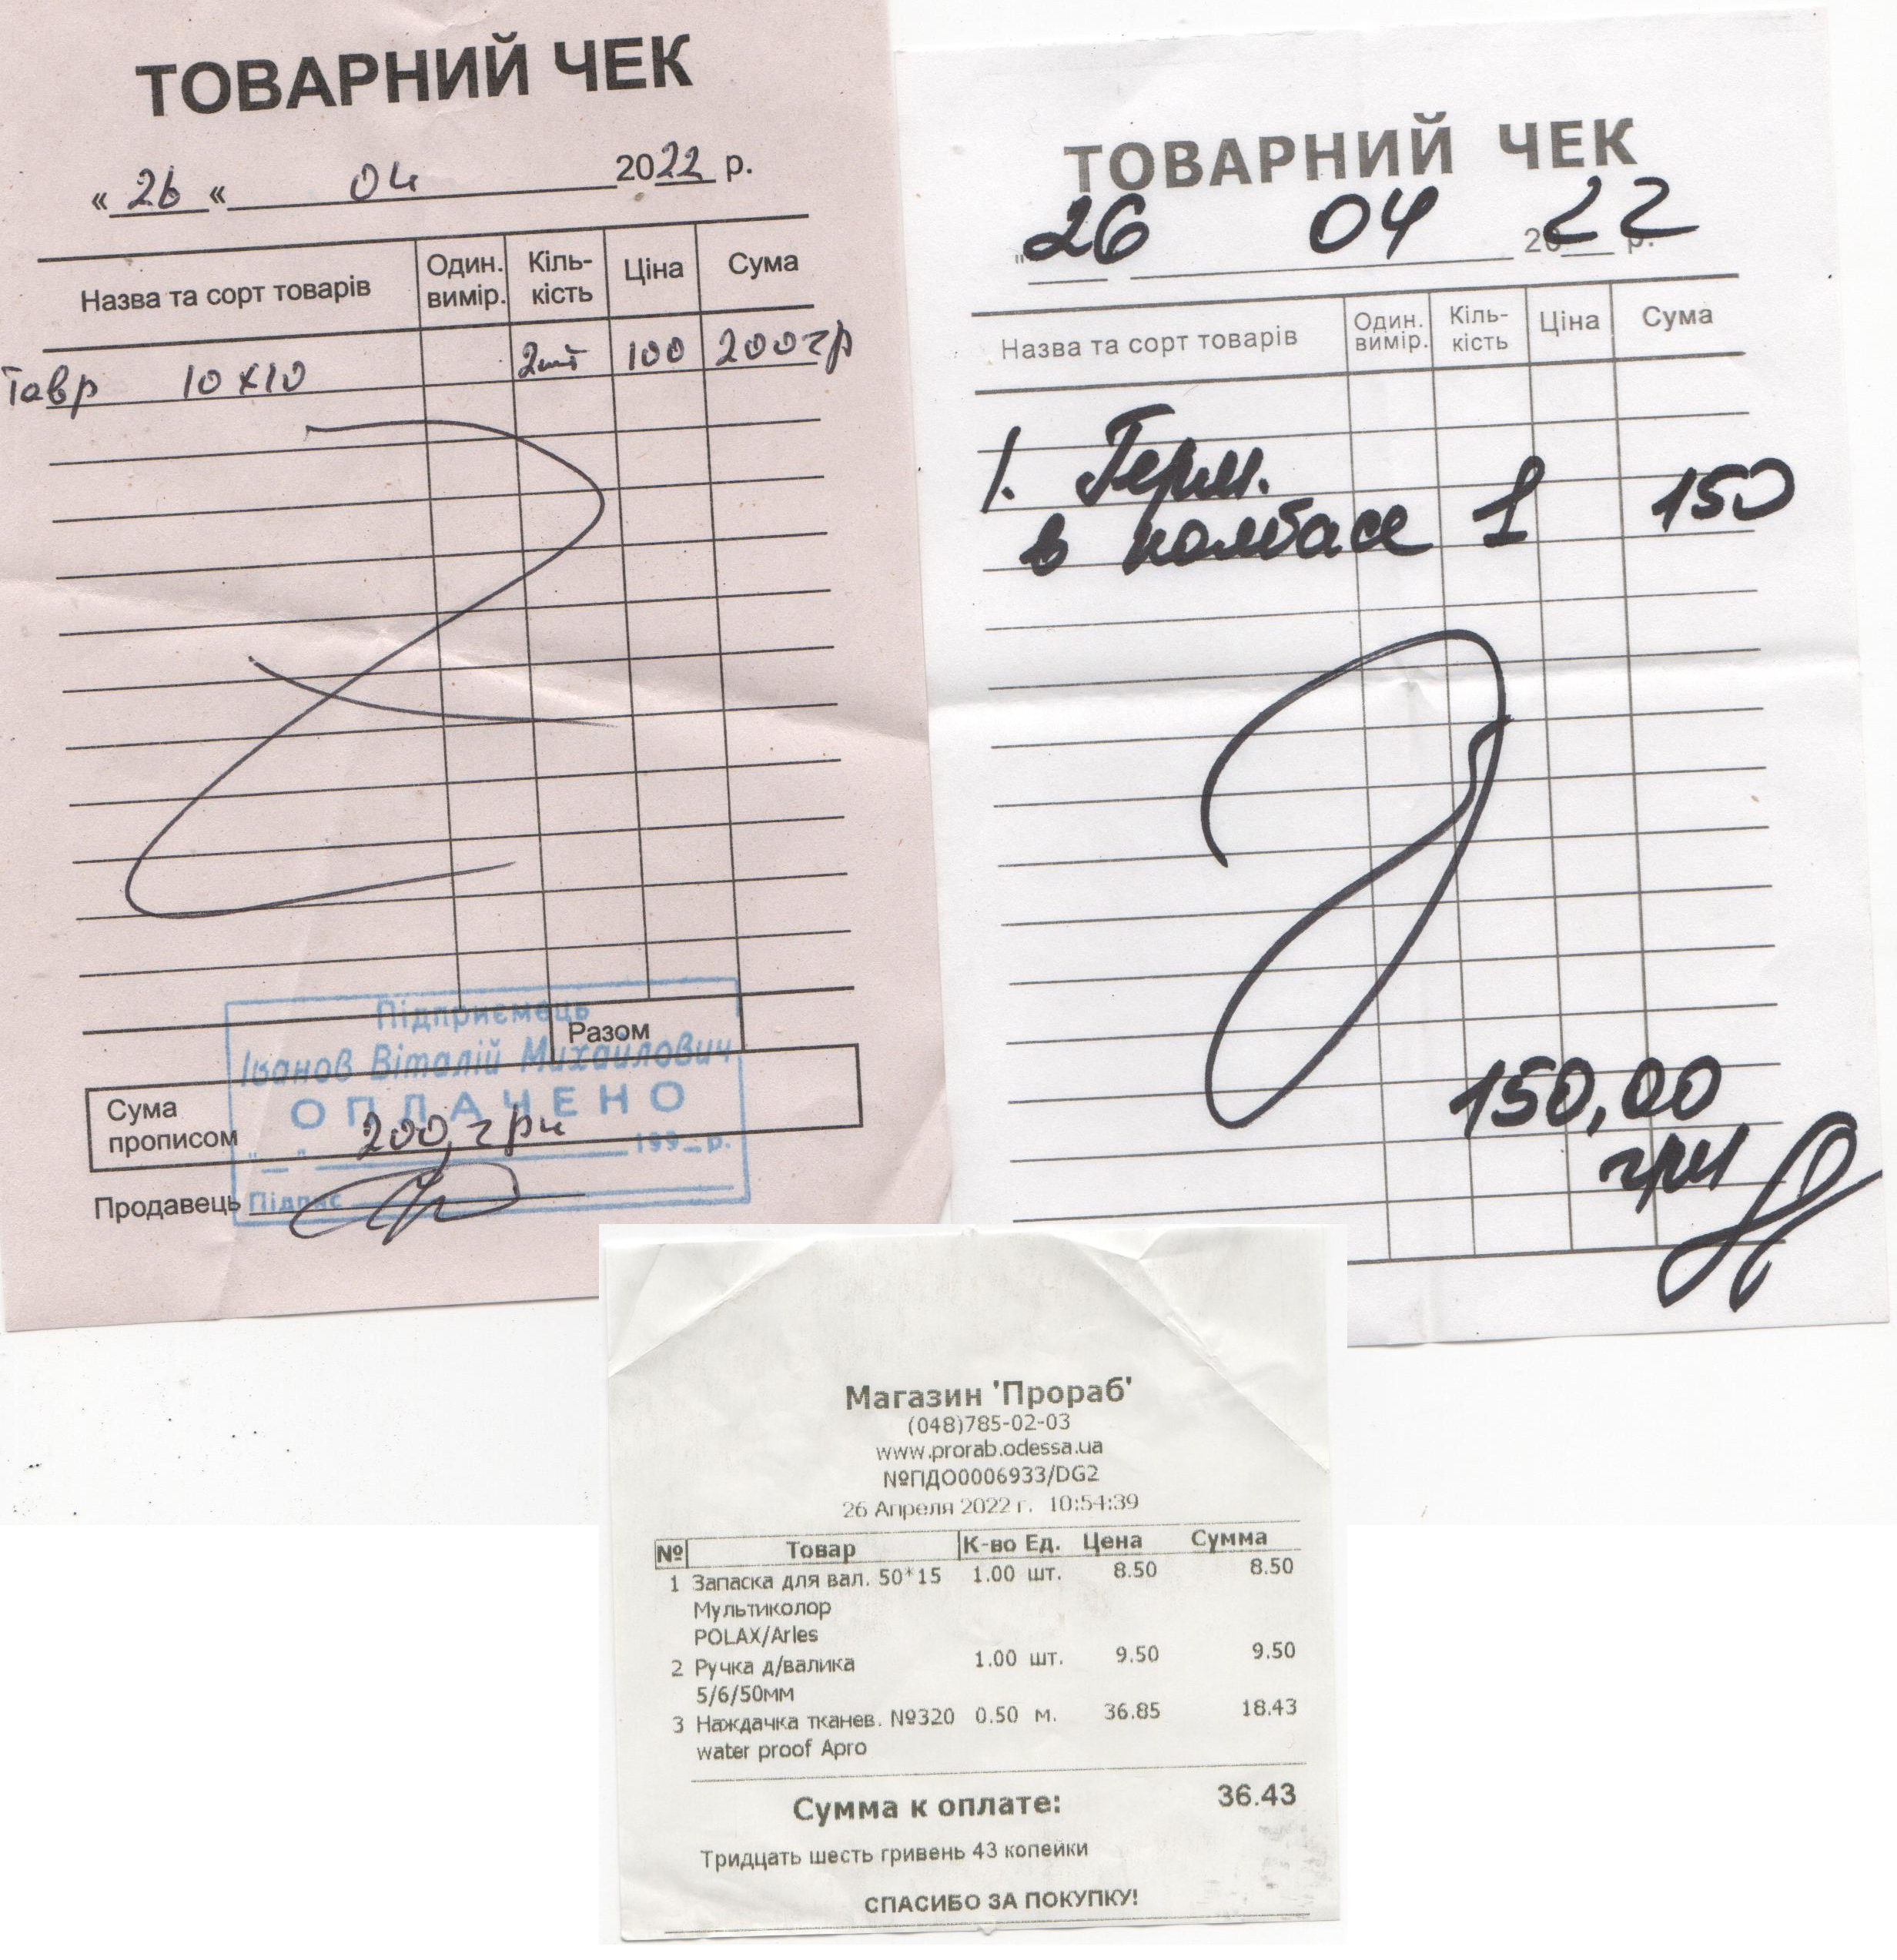 ТОВАРНИЙ ЧЕК
« 26 « 04 2022 р.
Назва та сорт товарів Один. вимір. Кіль-кість Ціна Сума
Тавр 10х10 2шт 100 200гр
Підприємець
Разом
Іванов Віталій Михайлович
ОПЛАЧЕНО
Сума прописом 200, грн
"_" 199_р.
Продавець
Підпис
ТОВАРНИЙ ЧЕК
" 26 04 2022 р.
Назва та сорт товарів Один. вимір. Кіль-кість Ціна Сума
1. Герм.
в колбасе 1 150
150,00
грн
Магазин 'Прораб'
(048)785-02-03
www.prorab.odessa.ua
№ПДО0006933/DG2
26 Апреля 2022 г. 10:54:39
№ Товар К-во Ед. Цена Сумма
1 Запаска для вал. 50*15 1.00 шт. 8.50 8.50
Мультиколор
POLAX/Arles
2 Ручка д/валика 1.00 шт. 9.50 9.50
5/6/50мм
3 Наждачка тканев. №320 0.50 м. 36.85 18.43
water proof Apro
Сумма к оплате: 36.43
Тридцать шесть гривень 43 копейки
СПАСИБО ЗА ПОКУПКУ!